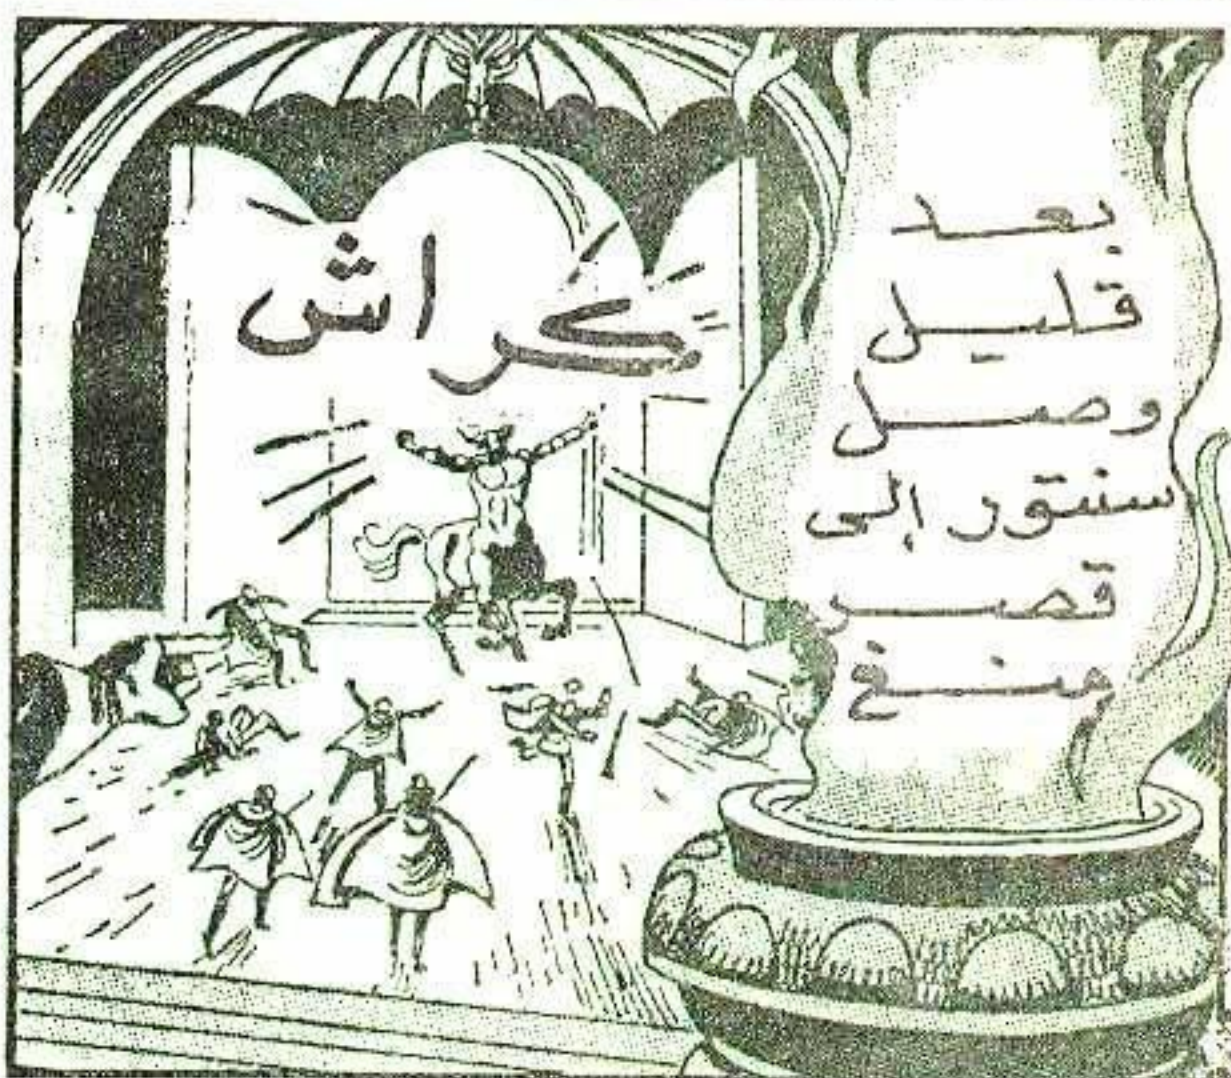 بعد
قليل
وصل
سنتور إلى
قصر
منغ
كراش